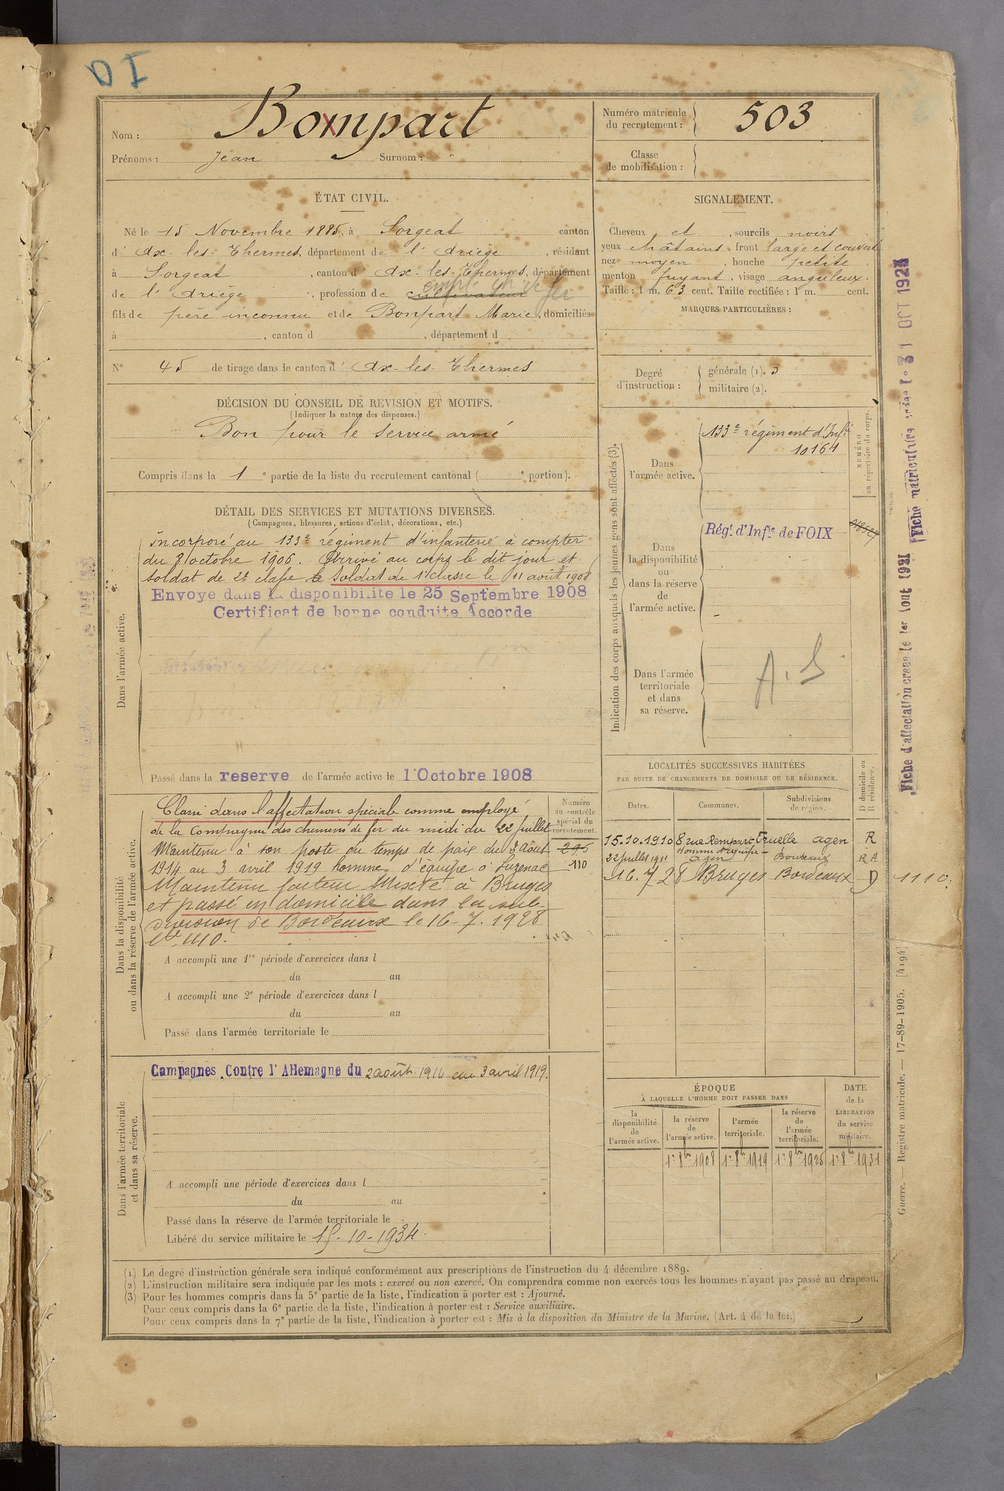 Nom : Bonpart
Prénoms : Jean Surnom :
Numéro matricule
du recrutement : 503
Classe
de mobilisation :
ÉTAT CIVIL.
Né le 15 Novembre 1885, à Sorgeat canton
d'Ax-les-Thermes, département de l'Ariège, résidant
à Sorgeat, canton d'Ax-les-Thermes, département
de l'Ariège, profession de cultivateur empl. ch de fer
fils de père inconnu et de Bonpart Marie, domiciliés
à , canton d , département d
N° 45 de tirage dans le canton d'Ax-les-Thermes
SIGNALEMENT.
Cheveux et , sourcils noirs
yeux châtains, front large et couvert
nez moyen, bouche petite
menton fuyant, visage anguleux.
Taille : 1 m. 63 cent. Taille rectifiée : 1 m. cent.
MARQUES PARTICULIÈRES :
Degré
d'instruction :
générale (1). 3
militaire (2).
DÉCISION DU CONSEIL DE REVISION ET MOTIFS.
(Indiquer la nature des dispenses.)
Bon pour le service armé
Compris dans la 1e partie de la liste du recrutement cantonal ( e portion).
DÉTAIL DES SERVICES ET MUTATIONS DIVERSES.
(Campagnes, blessures, actions d'éclat, décorations, etc.)
Dans l'armée active.
Incorporé au 133e régiment d'infanterie à compter
du 8 octobre 1906. Arrivé au corps le dit jour et
soldat de 2e classe le Soldat de 1e classe le 11 août 1908
Envoye dans la disponibilite le 25 Septembre 1908
Certificat de bonne conduite Accorde
Passé dans la reserve de l'armée active le 1 Octobre 1908
Indication des corps auxquels les jeunes gens sont affectés (3).
NUMÉRO
au répertoire du corps.
Dans
l'armée active.
133e régiment d'Infie
10164
Dans
la disponibilité
ou
dans la réserve
de
l'armée active.
Rég. d'Infie de FOIX
Dans l'armée
territoriale
et dans
sa réserve.
A. S
Dans la disponibilité
ou dans la réserve de l'armée active.
Numéro
au contrôle
spécial du
recrutement.
Classé dans l'affectation spéciale comme employé
de la Compagnie des chemins de fer du midi du 22 juillet
Maintenu à son poste du temps de paix du 3 août
1914 au 3 avril 1919 homme d'équipe à Luzenac
110
Maintenu facteur Mixte à Bruges
et passé en domicile dans la sub-
division de Bordeaux le 16-7.1928
No 1110.
A accompli une 1re période d'exercices dans l
du au
A accompli une 2e période d'exercices dans l
du au
Passé dans l'armée territoriale le
LOCALITÉS SUCCESSIVES HABITÉES
PAR SUITE DE CHANGEMENTS DE DOMICILE OU DE RÉSIDENCE.
Dates. Communes. Subdivisions
de région. D domicile ou
R résidence.
15.10.1910 8 rue Rempart Truelle agen R
22 juillet 1911 Homme d'équipe - agen Bordeaux R A
16.7.28 Bruges Bordeaux D 1110.
Dans l'armée territoriale
et dans sa réserve.
Campagnes Contre l'Allemagne du 2 août 1914 au 3 avril 1919.
A accompli une période d'exercices dans l
du au
Passé dans la réserve de l'armée territoriale le
Libéré du service militaire le 15-10-1934.
ÉPOQUE
À LAQUELLE L'HOMME DOIT PASSER DANS
DATE
de la
LIBÉRATION
du service
militaire.
la
disponibilité
de
l'armée active.
la réserve
de
l'armée active.
l'armée
territoriale.
la réserve
de
l'armée
territoriale.
1er 8bre 1908 1er 8bre 1919 1er 8bre 1925 1er 8bre 1931
(1) Le degré d'instruction générale sera indiqué conformément aux prescriptions de l'instruction du 4 décembre 1889.
(2) L'instruction militaire sera indiquée par les mots : exercé ou non exercé. On comprendra comme non exercés tous les hommes n'ayant pas passé au drapeau.
(3) Pour les hommes compris dans la 5e partie de la liste, l'indication à porter est : Ajourné.
Pour ceux compris dans la 6e partie de la liste, l'indication à porter est : Service auxiliaire.
Pour ceux compris dans la 7e partie de la liste, l'indication à porter est : Mis à la disposition du Ministre de la Marine. (Art. 4 de la loi.)
Fiche d'affectation creee le 1er Aout 1921
Fiche matriculaire
31 OCT 1925
Guerre. — Registre matricule. — 17-89-1905. [4194]